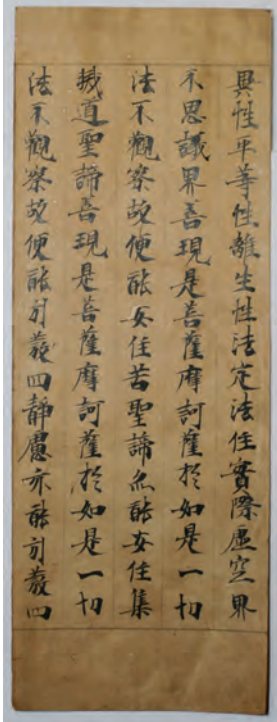 異性平等性離生性法定法住實際虛空界
不思議界善現是菩薩摩訶薩於如是一切
法不觀察故便能安住苦聖諦亦能安住集
滅道聖諦善現是菩薩摩訶薩於如是一切
法不觀察故便能引發四靜慮亦能引發四